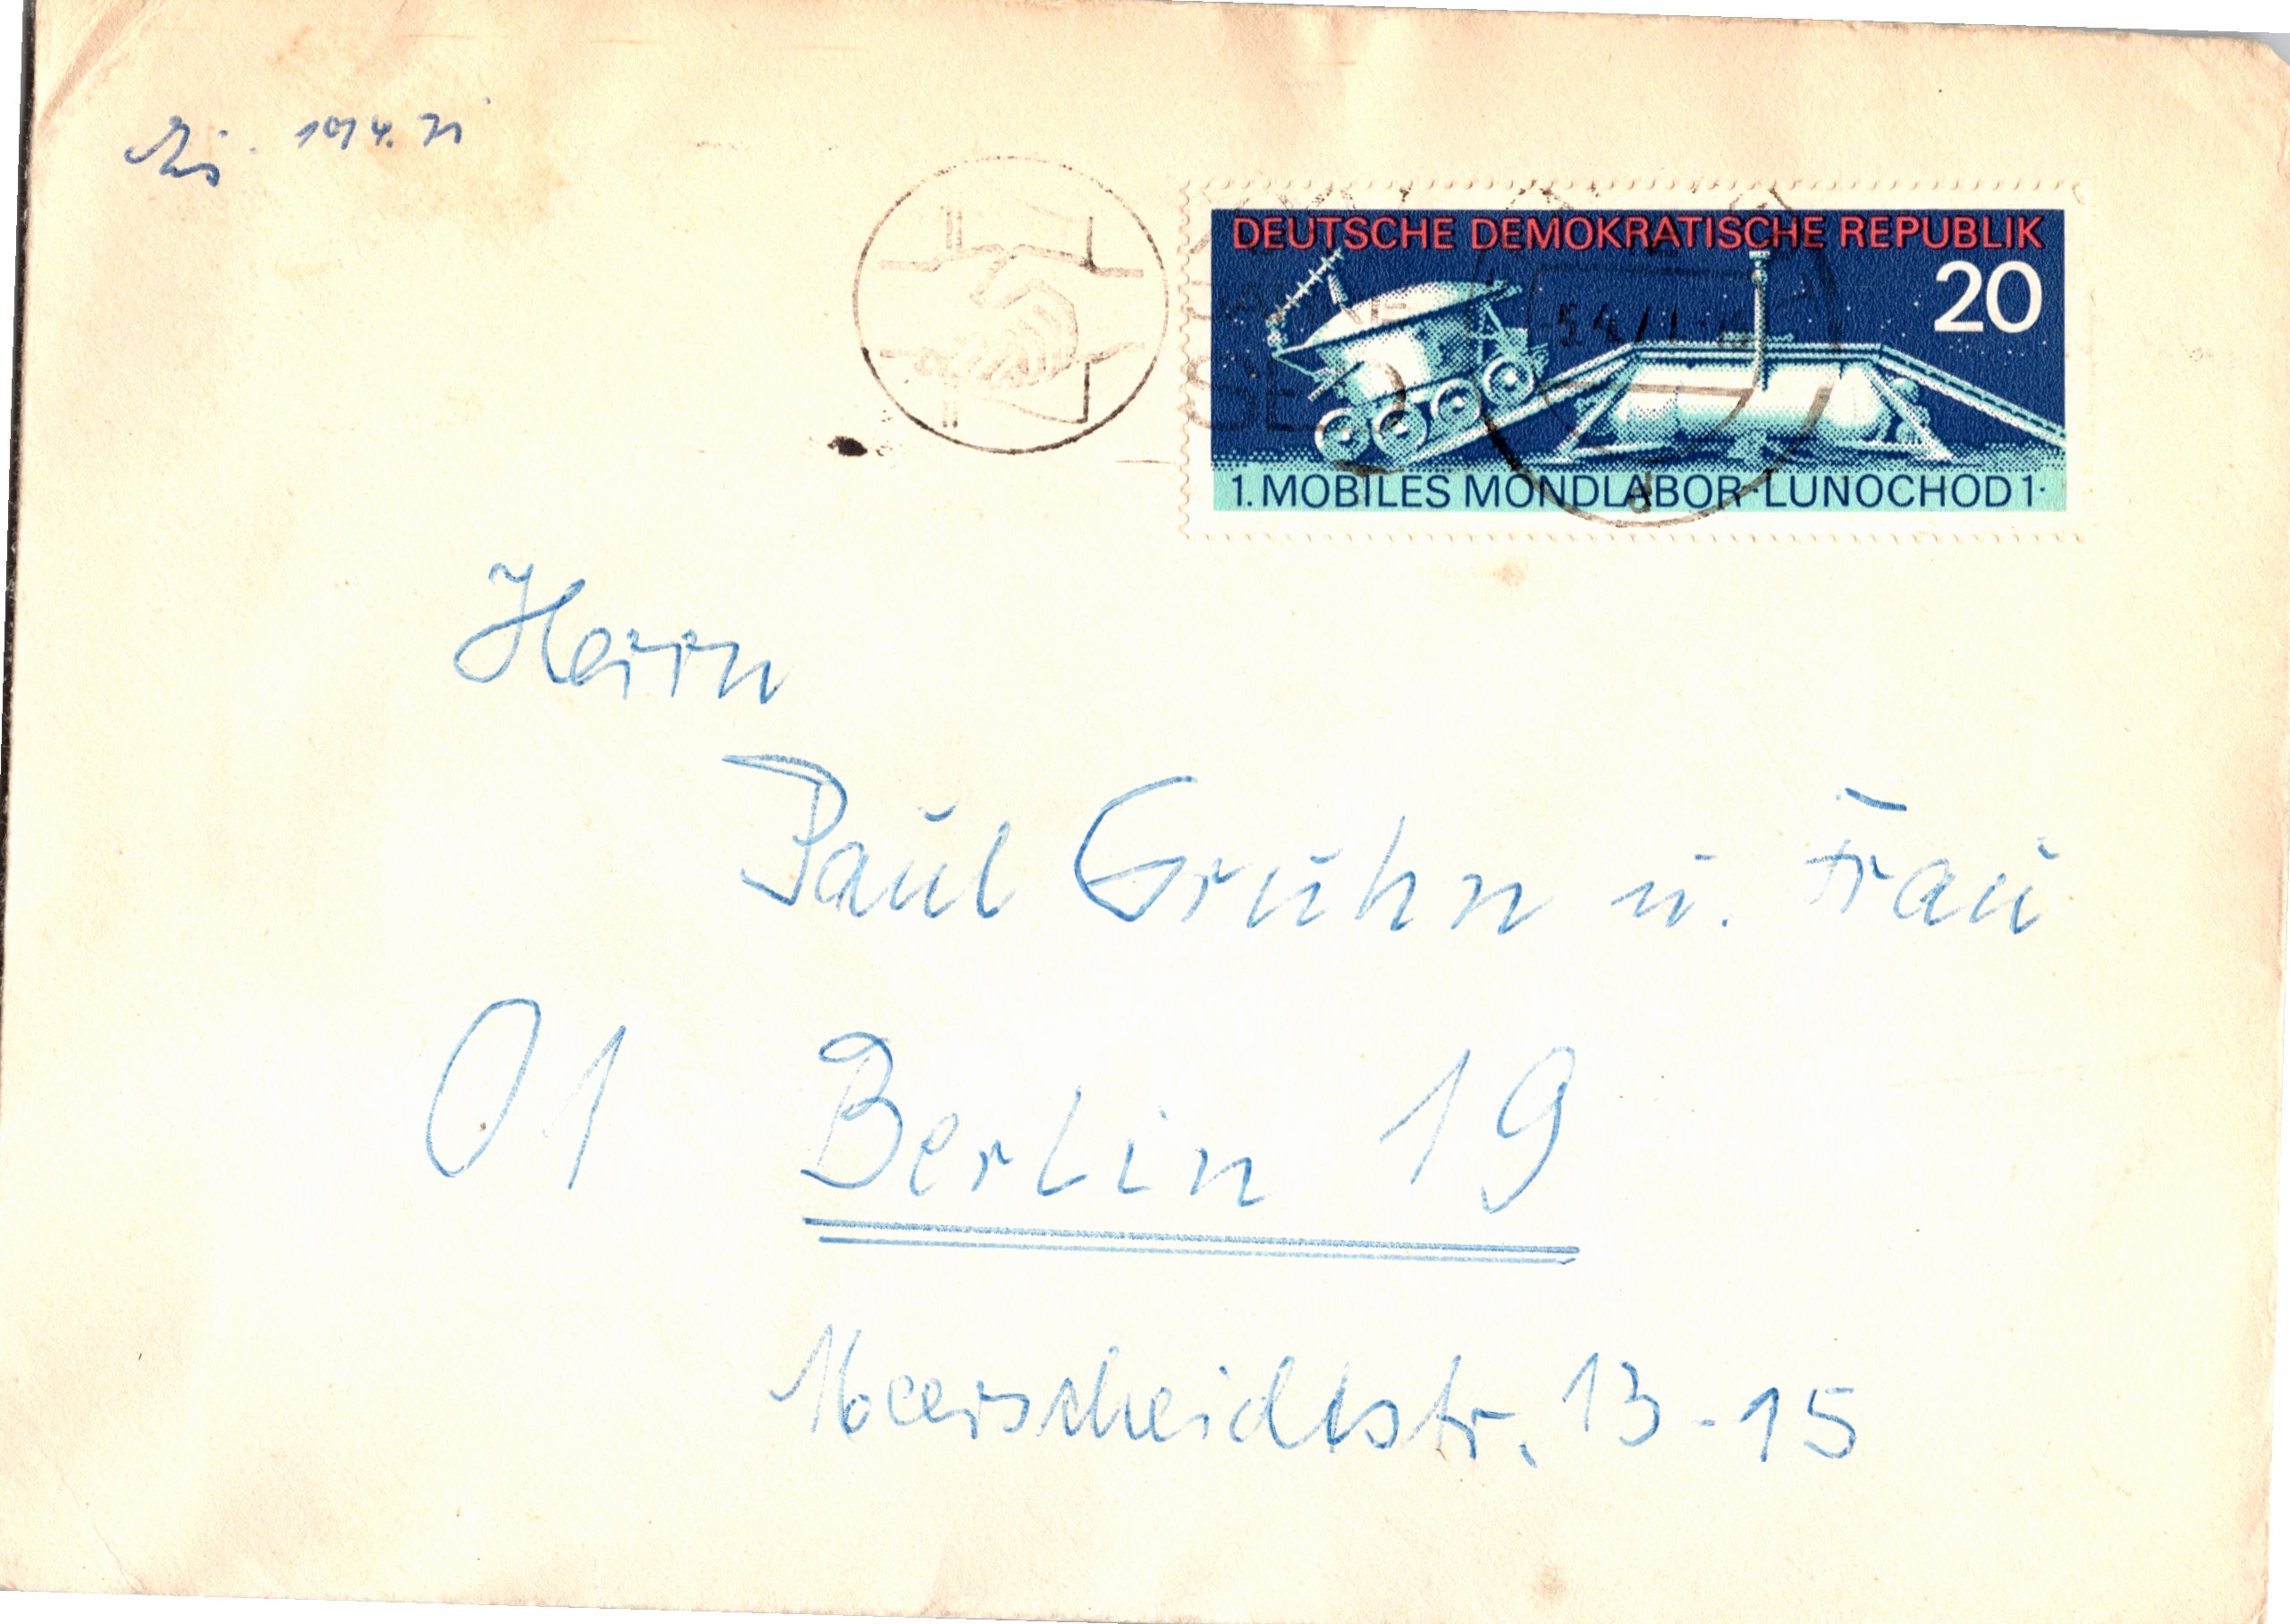 19.4.71
DEUTSCHE DEMOKRATISCHE REPUBLIK
20
SED
5.4.71
d
1. MOBILES MONDLABOR·LUNOCHOD 1·
Herrn
Paul Gruhn u. Frau
01 Berlin 19
Meerscheidtstr. 13-15